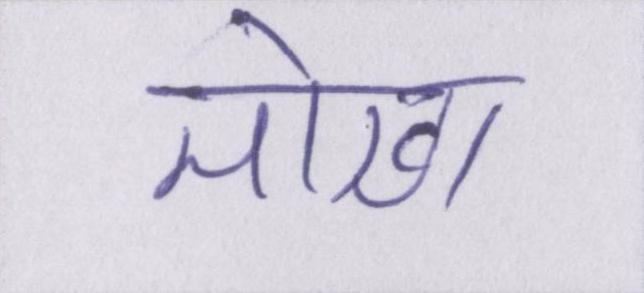 मोखा